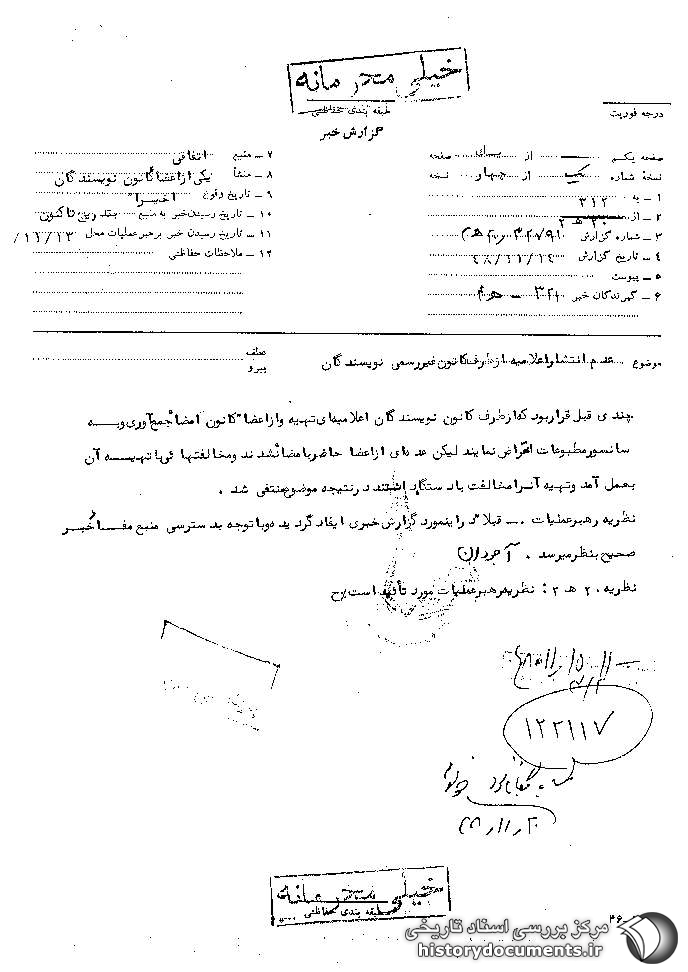 خیلی محرمانه
طبقه بندی حفاظتی
گزارش خبر
درجه فوریت
صفحه یکم از صفحه
نسخه شماره یک از چهار نسخه
۱ ـ به ۳۱۲
۲ ـ از ۲۰ ه ۲
۳ ـ شماره گزارش
۴ ـ تاریخ گزارش ۴۸/۱۱/۱۴
۵ ـ پیوست
۶ ـ گیرندگان خبر
۷ ـ منبع اتفاقی
۸ ـ منشأ یکی از اعضا کانون نویسندگان
۹ ـ تاریخ وقوع اخیرا"
۱۰ ـ تاریخ رسیدن خبر به منبع
۱۱ ـ تاریخ رسیدن خبر برهبر عملیات محل ۱۱/۱۳/
۱۲ ـ ملاحظات حفاظتی
موضوع عدم انتشار اعلامیه از طرف کانون غیررسمی نویسندگان
عطف
پیرو
چندی قبل قرار بود که از طرف کانون نویسندگان اعلامیه‌ای تهیه و از اعضا" کانون امضا" جمع‌آوری و به
سانسور مطبوعات اعتراض نمایند لیکن عده‌ای از اعضا حاضر بامضا نشدند و مخالفتهائی با تهیه آن
بعمل آمد و تهیه آنرا مخالفت با دستگاه دانستند در نتیجه موضوع منتفی شد .
نظریه رهبر عملیات ـ قبلا" در اینمورد گزارش خبری ایفاد گردیده و با توجه بدسترسی منبع مفاد خبر
صحیح بنظر میرسد . آجودان
نظریه ۲۰ ه ۲ : نظریه رهبر عملیات مورد تأئید است
۱۲۲۱۱۷
خیلی محرمانه
طبقه بندی حفاظتی
۳۶
مرکز بررسی اسناد تاریخی
historydocuments.ir